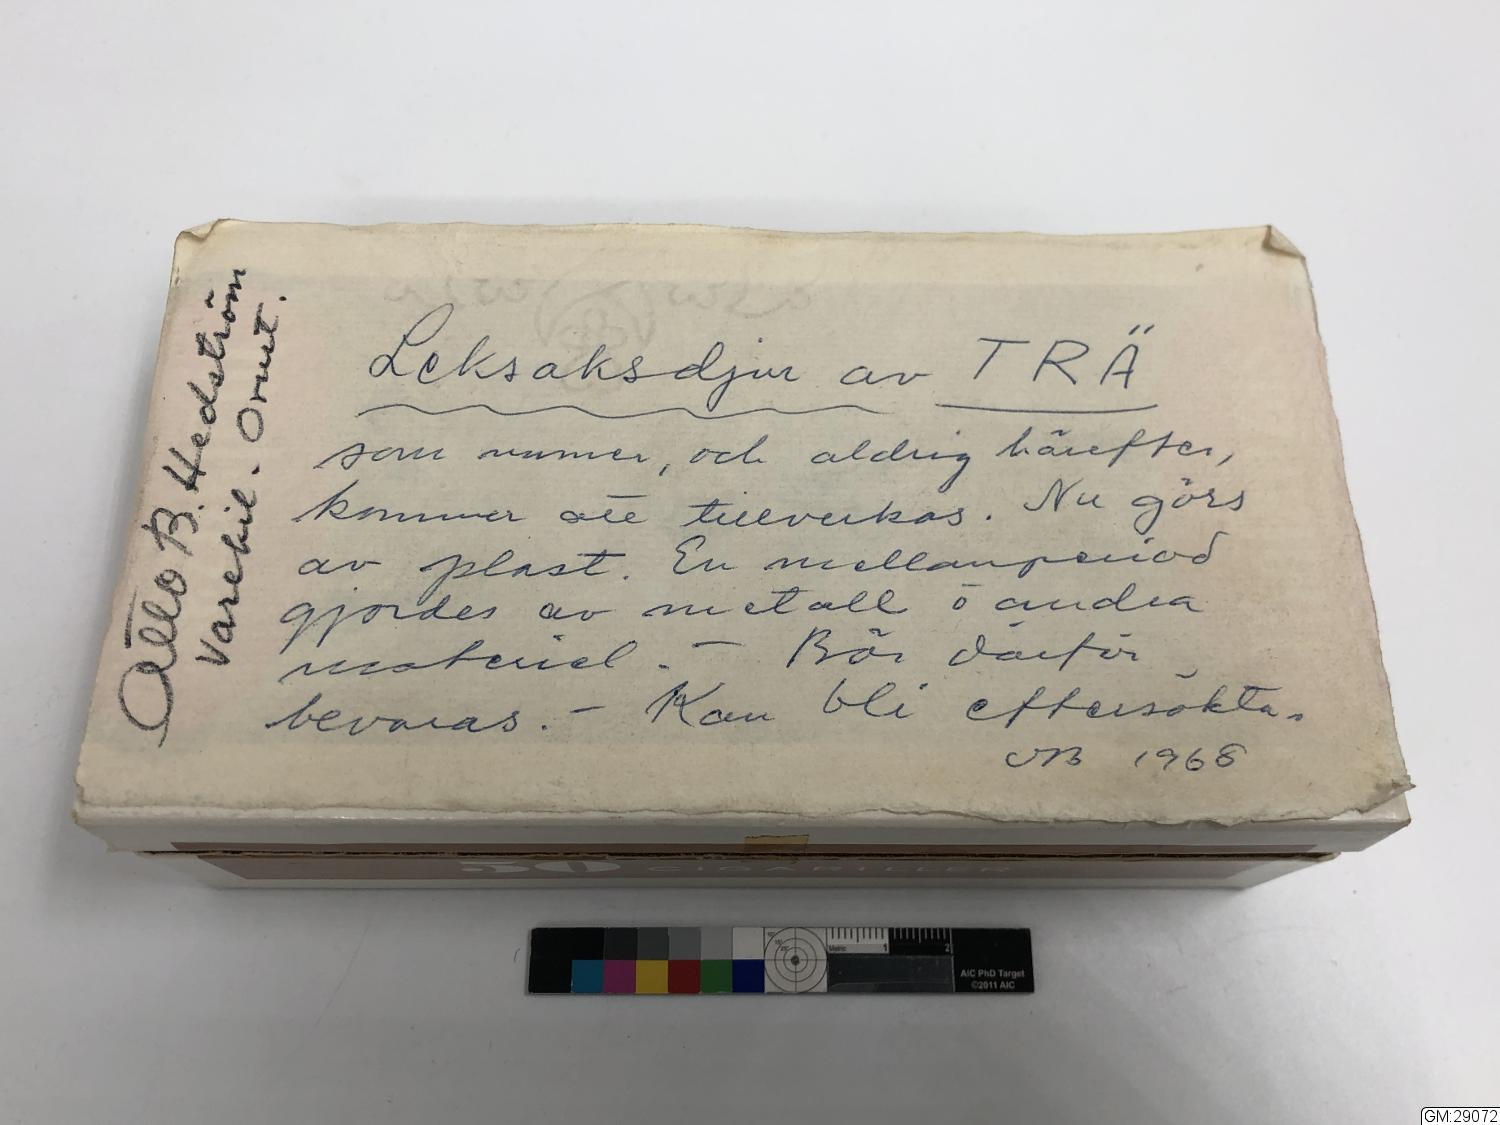 Leksaksdjur av TRÄ
som numer, och aldrig härefter,
kommer att tillverkas. Nu görs
av plast. En mellanperiod
gjordes av metall o andra
material. - Bör därför
bevaras. - Kan bli eftersökta.
1968
B. Hedström
Varekil. Orust.
50 CIGARILLER
Metric 1 2
AIC PhD Target
©2011 AIC
GM:29072